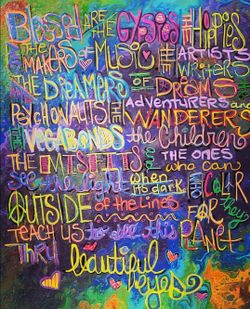 Blessed ARE THE GYPSIES THE HIPPIES
THE MAKERS OF MUSIC THE ARTISTS
THE WRITERS
THE DREAMERS OF DREAMS
PSYCHONAUTS THE ADVENTURERS AND
THE VAGABONDS THE WANDERERS
the children
THE MISFITS and THE ONES
who can
see the light when its dark AND COLOR
OUTSIDE of the Lines FOR they
TEACH US to see this PLANET
THRU beautiful
eyes